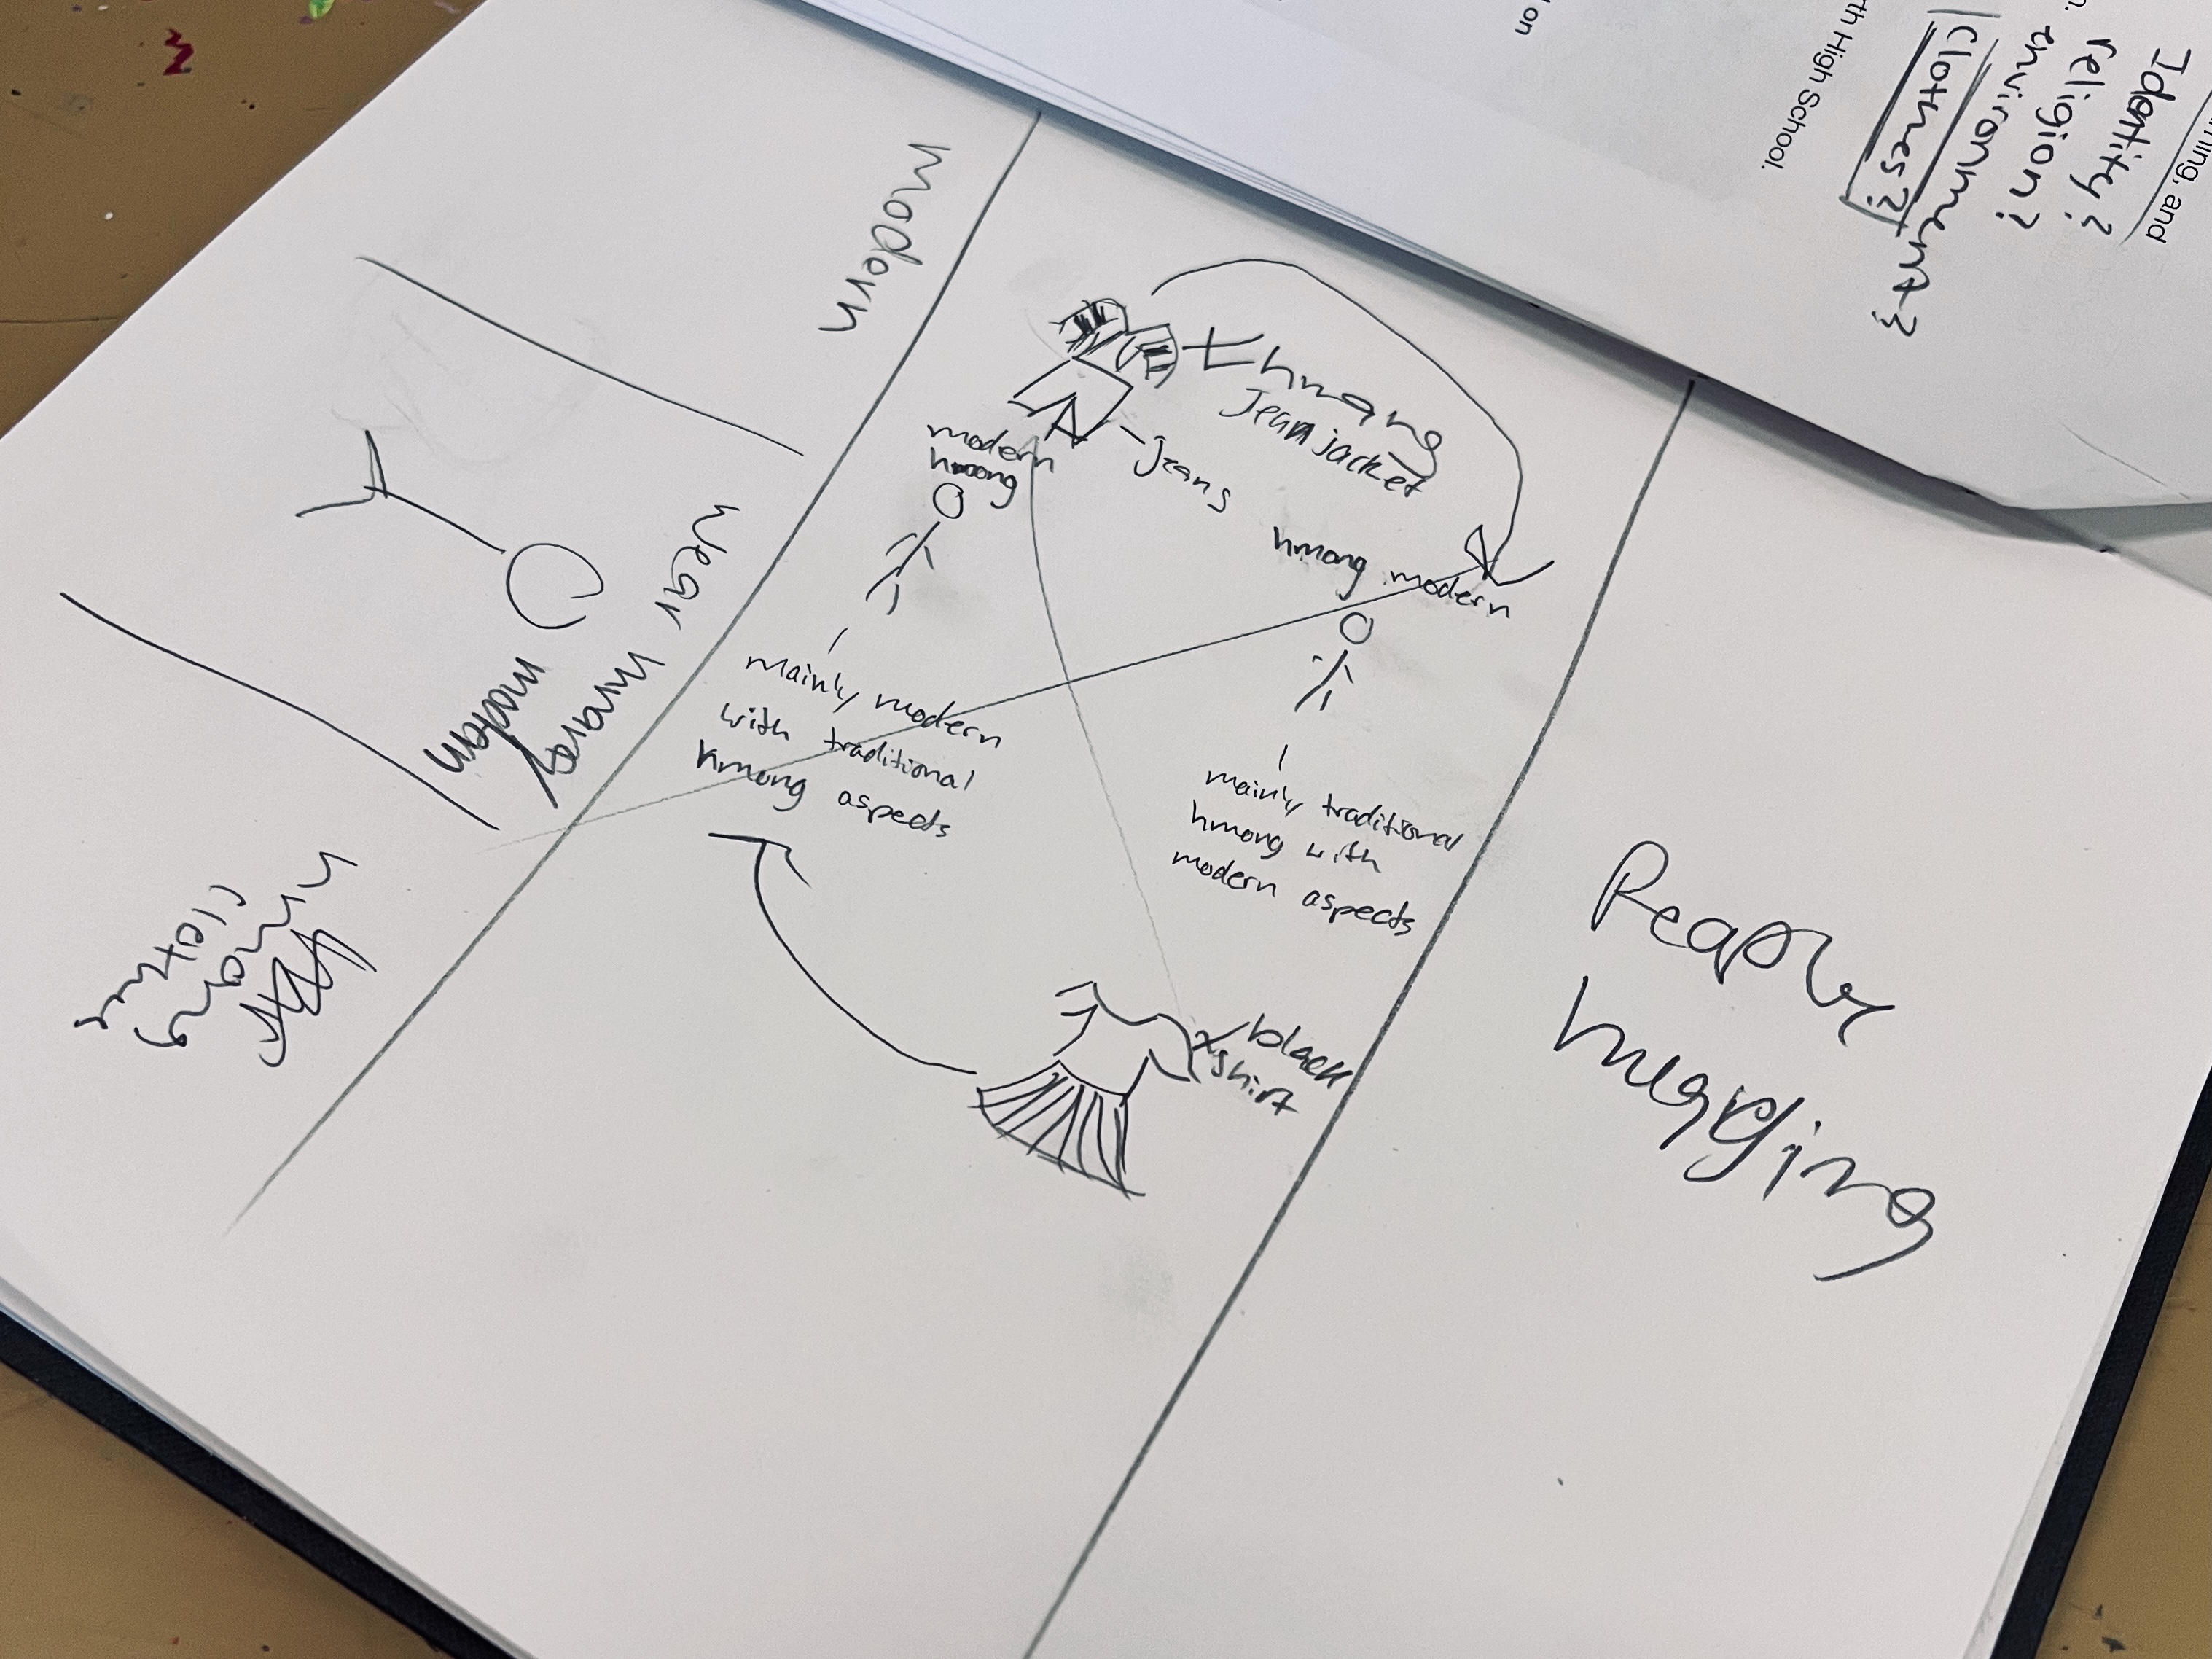 on
rth High School.
rning, and
n.
Identity?
religion?
environment?
Clothes?
modern
wear hmong
modern
hmong
clothes
hmong
Jean jacket
Jeans
modern
hmong
mainly modern
with traditional
hmong aspects
hmong modern
mainly traditional
hmong with
modern aspects
black
shirt
People
merging